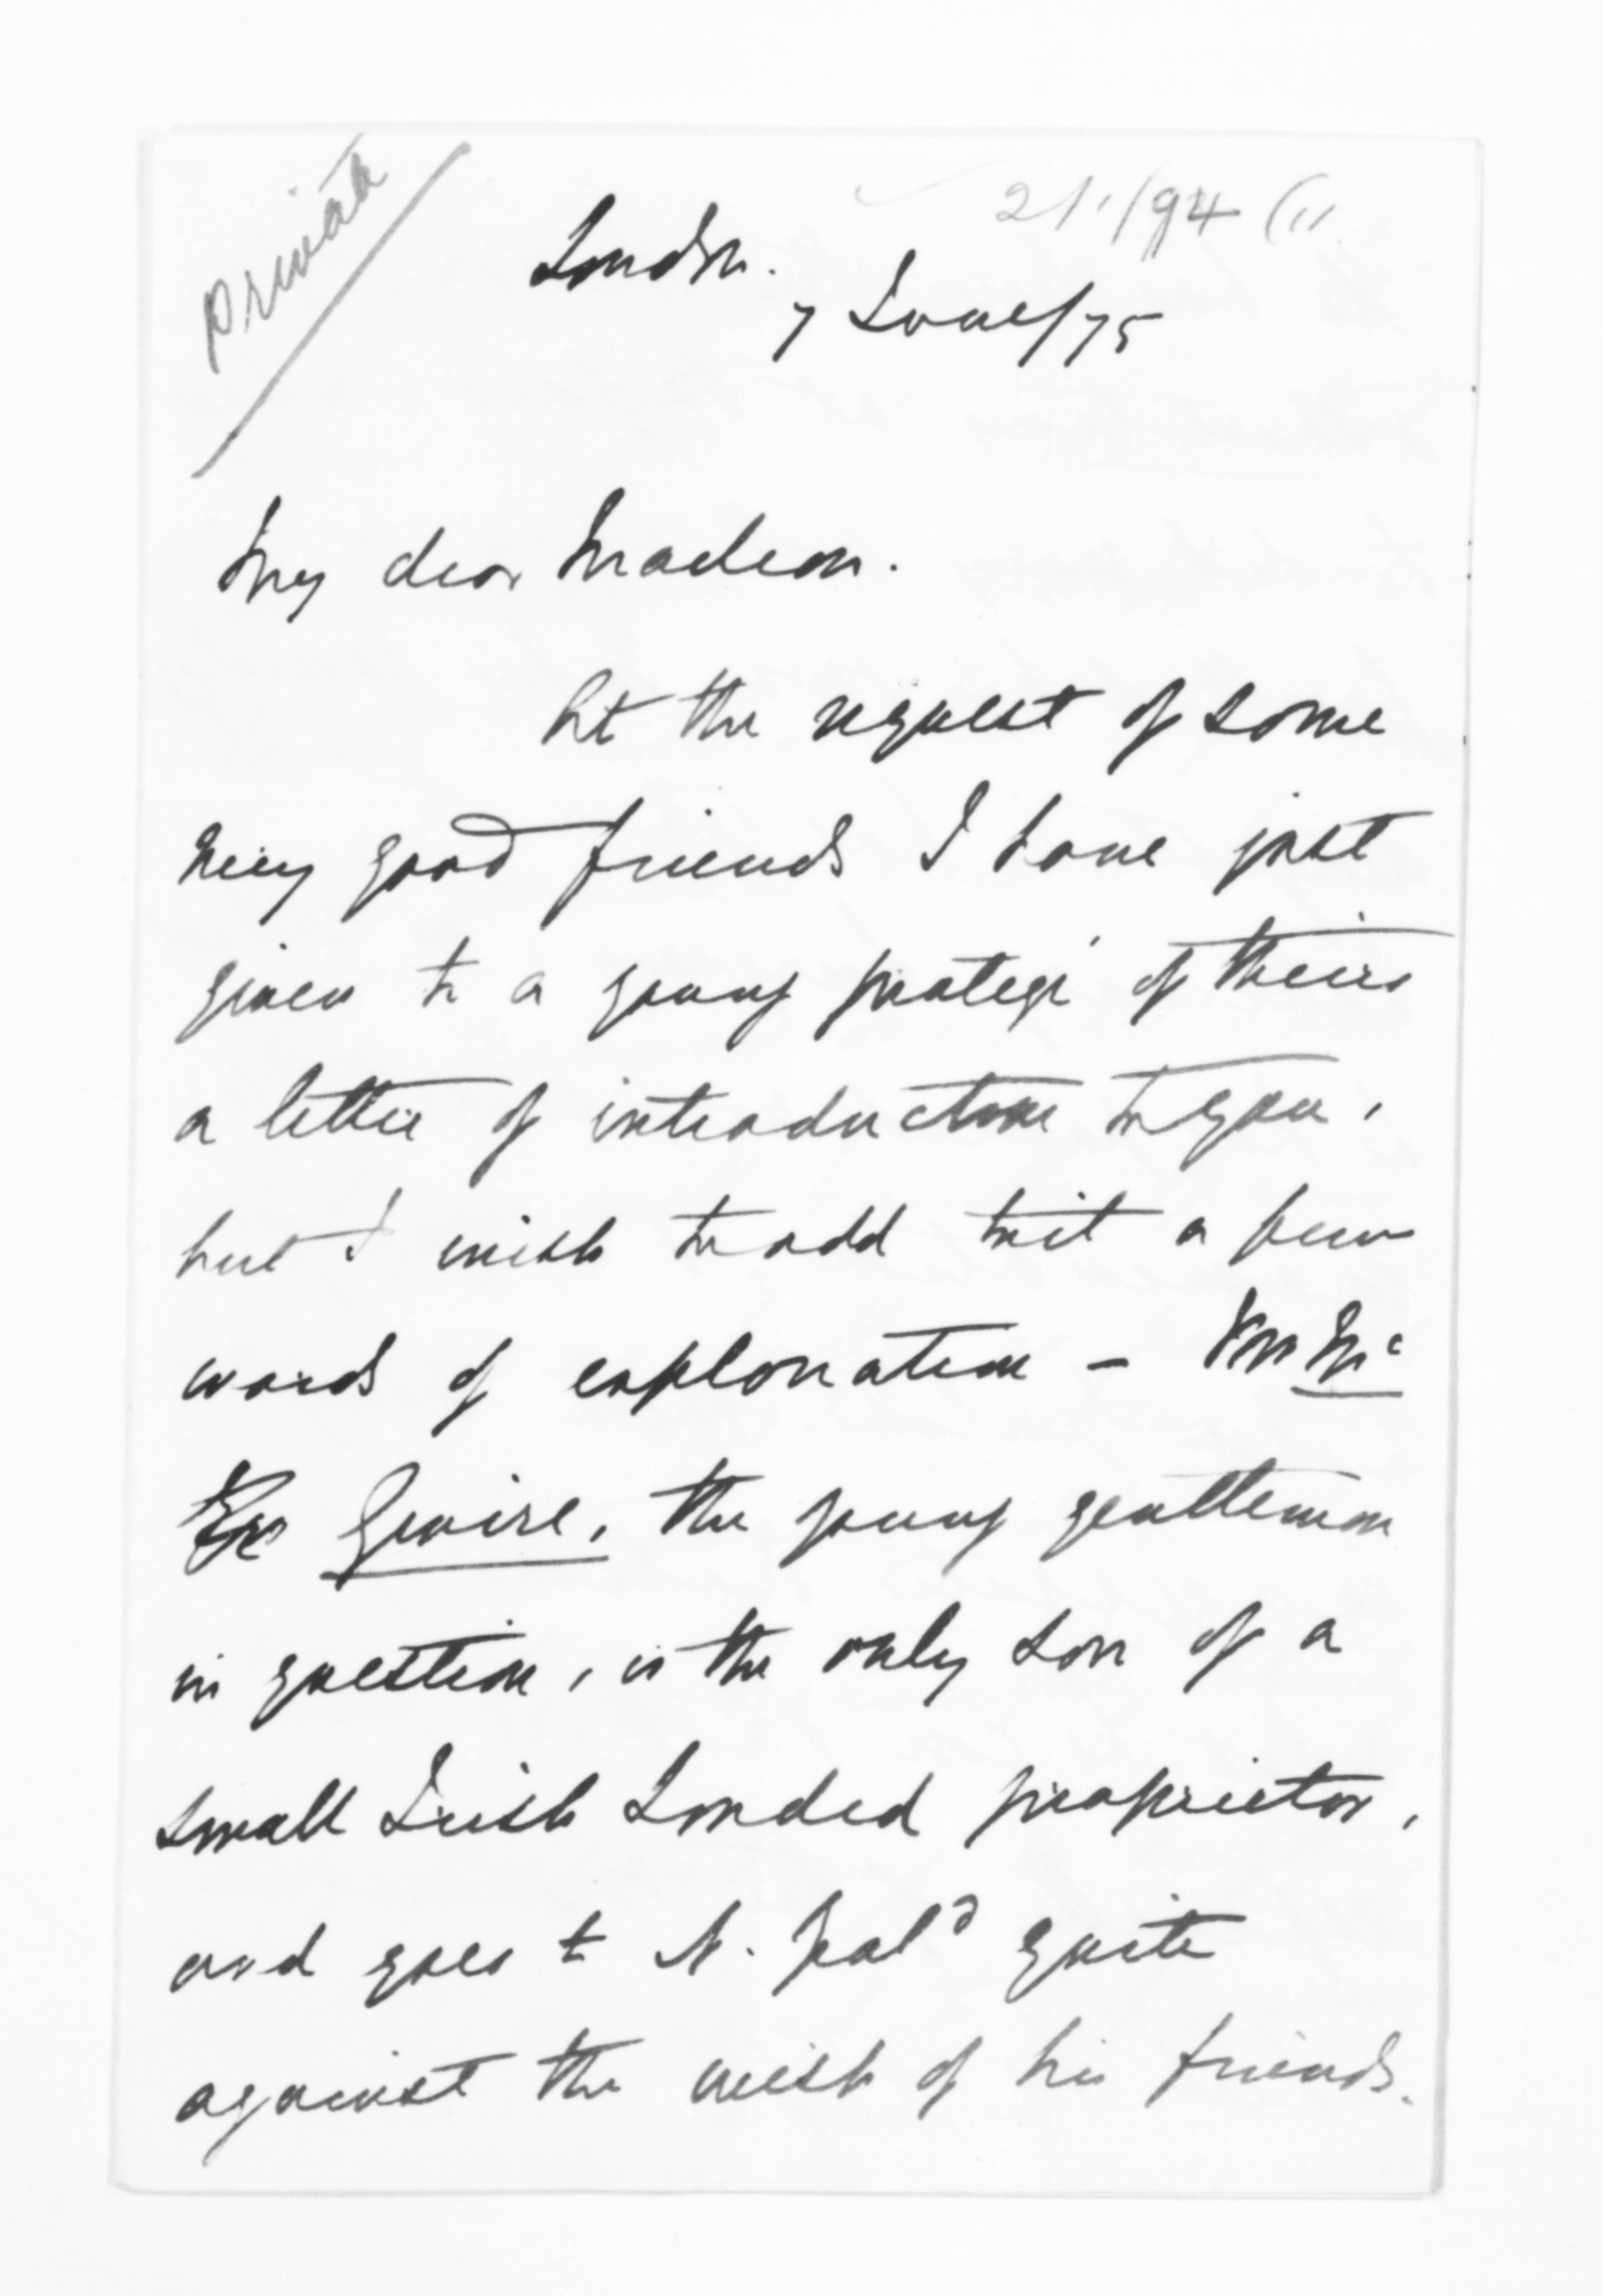 Private
London.
7 June/75
My dear Maclean.
At the request of some
very good friends I have just
given to a young protegé of theirs
a letter of introduction to you,
but I wish to add to it a few
words of explanation - Mr Mc
Gwire, the young gentleman
in question, is the only son of a
small Irish Landed proprietor,
and goes to N. Zeald quite
against the wish of his friends.